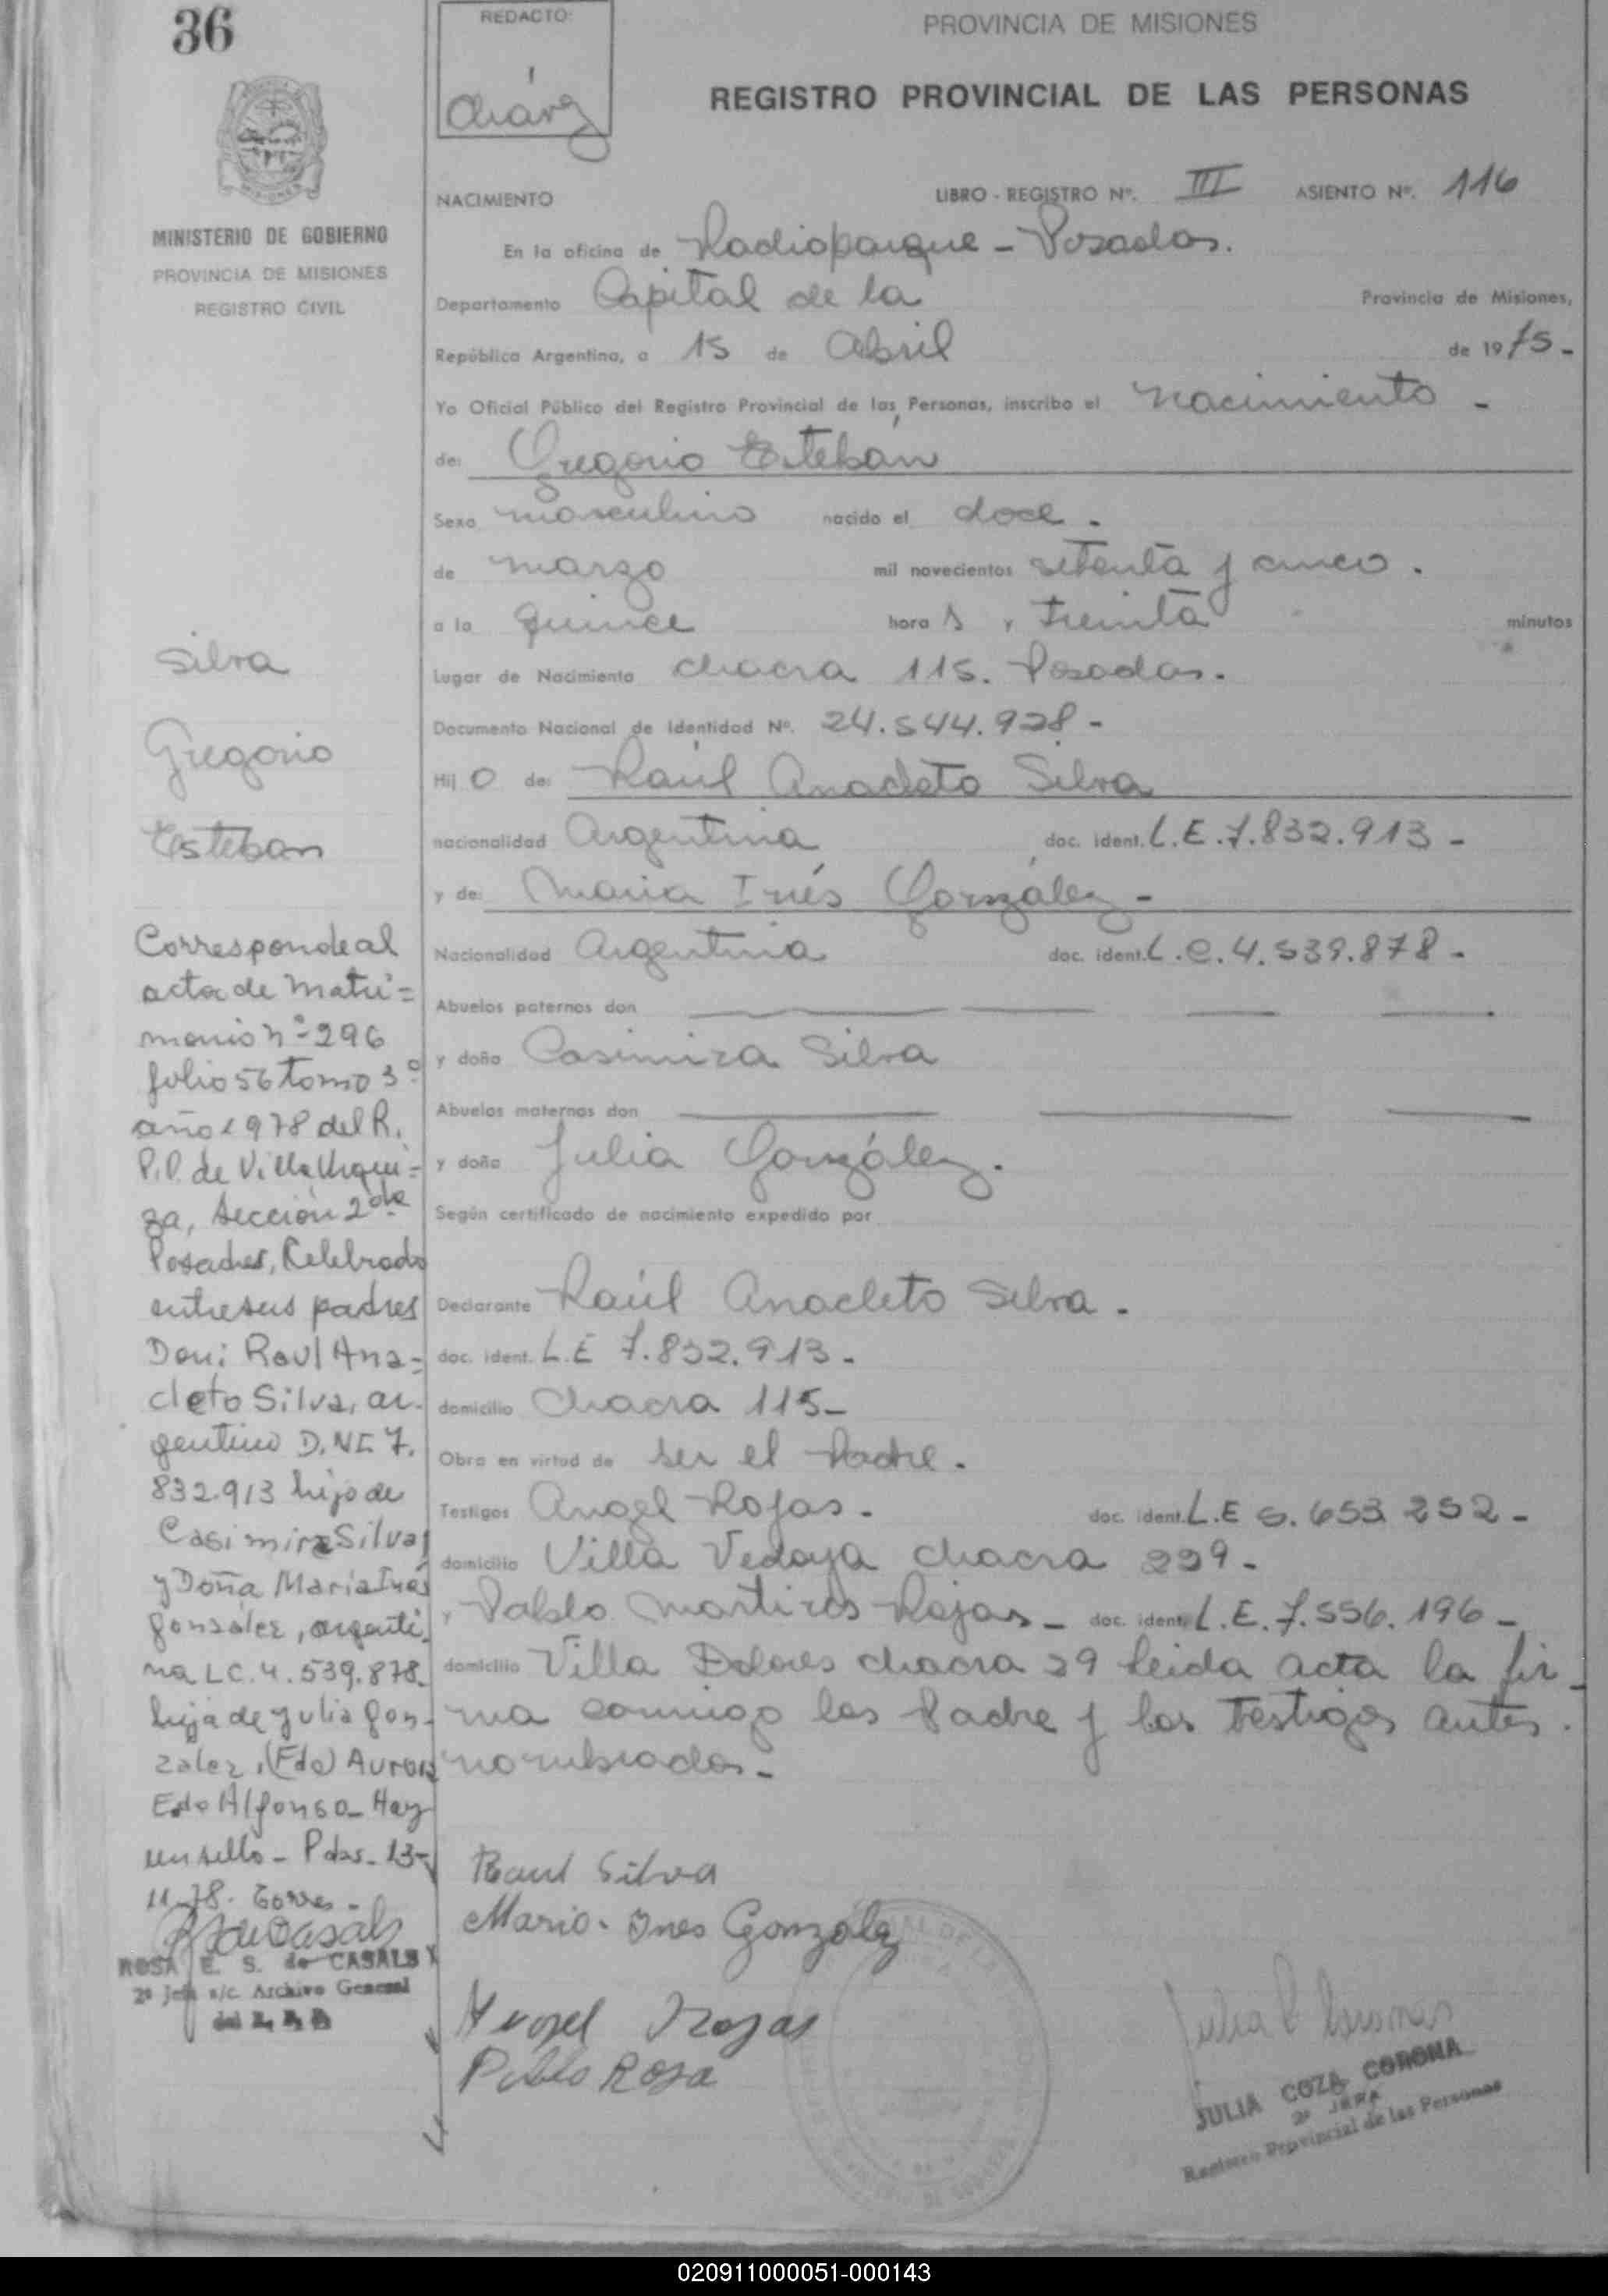 36
REDACTO:
Chávez
PROVINCIA DE MISIONES
REGISTRO PROVINCIAL DE LAS PERSONAS
MINISTERIO DE GOBIERNO
PROVINCIA DE MISIONES
REGISTRO CIVIL
NACIMIENTO LIBRO - REGISTRO Nº. III ASIENTO Nº. 116
En la oficina de Radioparque - Posadas.
Departamento Capital de la Provincia de Misiones,
República Argentina, a 15 de Abril de 1975-
Yo Oficial Público del Registro Provincial de las Personas, inscribo el nacimiento -
de: Gregorio Esteban
Sexo masculino nacido el doce.
de marzo mil novecientos setenta y cinco.
a la quince hora s y treinta minutos
Lugar de Nacimiento chacra 115. Posadas.
Documento Nacional de Identidad Nº. 24.544.928-
Hij o de: Raúl Anacleto Silva
nacionalidad Argentina doc. ident. L.E. 7.832.913-
y de: Maria Inés González-
Nacionalidad Argentina doc. ident. L.C. 4.539.878-
Abuelos paternos don
y doña Casimira Silva
Abuelos maternos don
y doña Julia González.
Según certificado de nacimiento expedido por
Declarante Raúl Anacleto Silva.
doc. ident. L.E 7.832.913-
domicilio Chacra 115-
Obra en virtud de ser el Padre.
Testigos Angel Rojas. doc. ident. L.E 5.653 252-
domicilio Villa Vedoya chacra 229-
y Pablo Martires Rojas- doc. ident. L.E. 7.556.196-
domicilio Villa Dolores chacra 29 leida acta la fir-
ma conmigo los Padre y los testigos antes
nombrados-
Silva
Gregorio
Esteban
Corresponde al
acta de matri=
monio nº 296
folio 56 tomo 3º
año 1978 del R.
P.P. de Villa Urqui=
za, Sección 2da
Posadas, Celebrado
entre sus padres
Don: Raul Ana=
cleto Silva, ar-
gentino D.NI 7.
832.913 hijo de
Casimira Silva
y Doña Maria Inés
gonzález, argenti-
na LC. 4.539.878.
hija de Julia gon-
zalez, (Fdo) Aurora
Edo Alfonso- Hay
un sello- Pdas- 13-
11-78. Torres-
ROSA E. S. de CASALS
2º Jefa a/c. Archivo General
del R. P. P.
Raul Silva
Maria. Ines Gonzalez
Angel Rojas
Pablo Roja
JULIA COZA CORONA
2º JEFA
Registro Provincial de las Personas
020911000051-000143